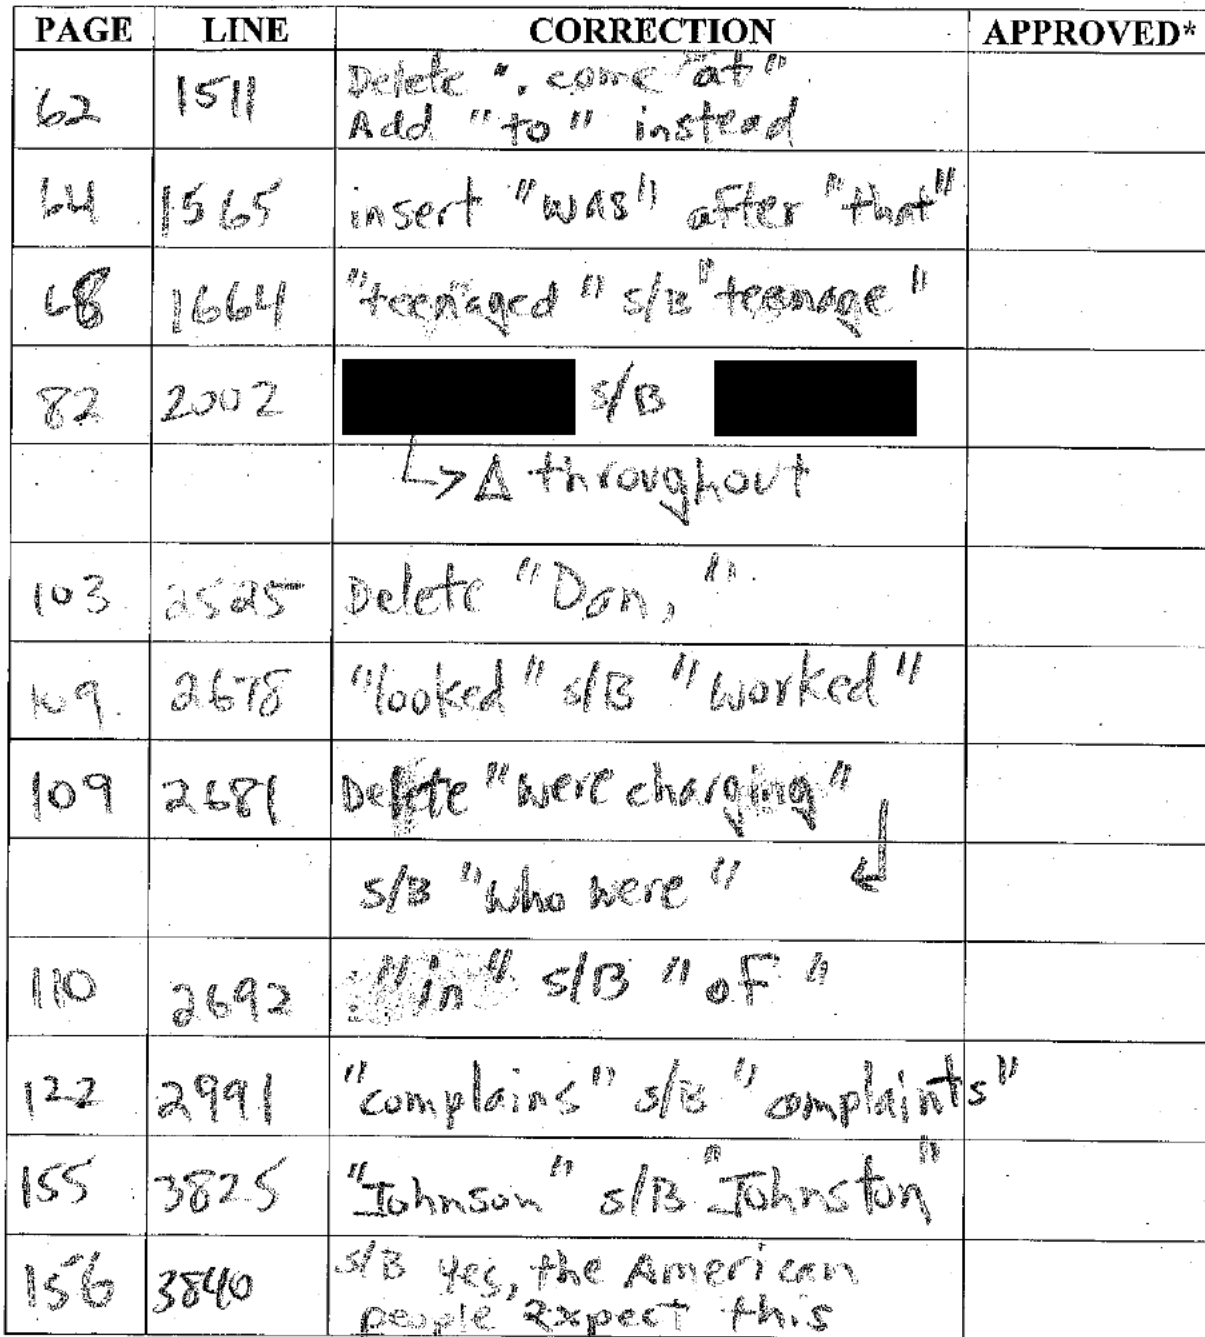 PAGE LINE CORRECTION APPROVED*
62 1511 Delete ". come at"
Add "to" instead
64 1565 insert "was" after "that"
68 1664 "teenaged" s/B "teenage"
82 2002 s/B
↳ Δ throughout
103 2525 Delete "Don, "
109 2678 "looked" s/B "worked"
109 2681 Delete "were charging"
s/B "who were"
110 2692 "in" s/B "of"
122 2991 "complains" s/B "complaints"
155 3825 "Johnson" s/B "Johnston"
156 3840 s/B yes, the American
people expect this